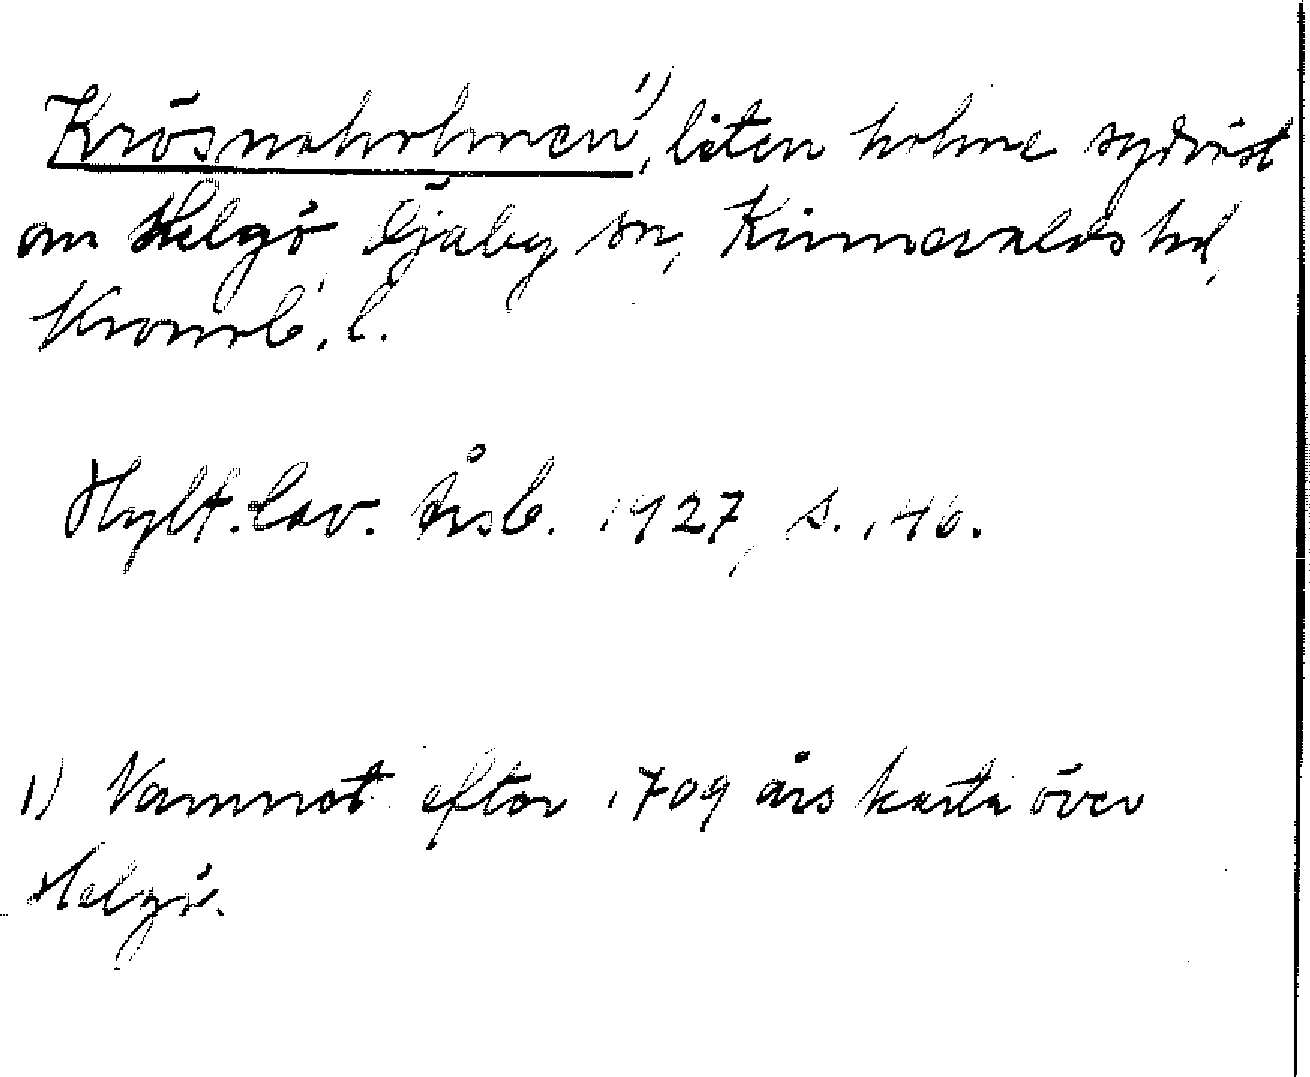 Krösnaholmen¹⁾, liten holme sydväst
om Helgö, Öjaby sn, Kinnevalds hd,
Kronob. l.
Hylt.-Cav. Årsb. 1927, s. 146.
1) Namnet efter 1709 års karta över
Helgö.